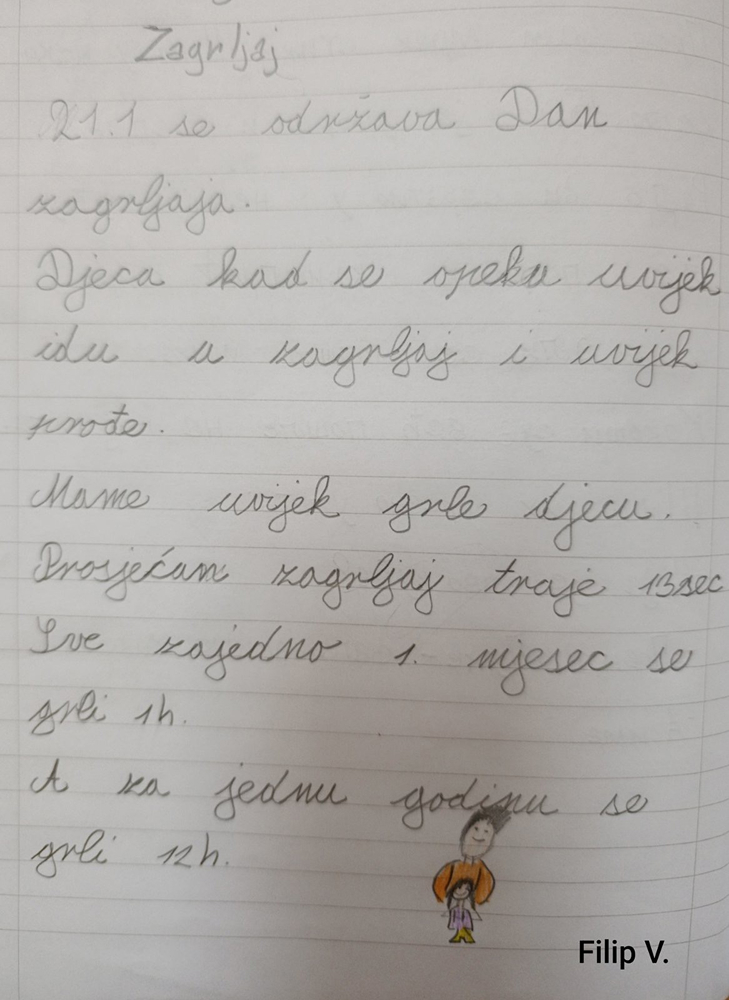 Zagrljaj
21.1 se održava Dan
zagrljaja.
Djeca kad se opeku uvijek
idu u zagrljaj i uvijek
prođe.
Mame uvijek grle djecu.
Prosječan zagrljaj traje 13sec
Sve zajedno 1. mjesec se
grli 1h.
A za jednu godinu se
grli 12h.
Filip V.